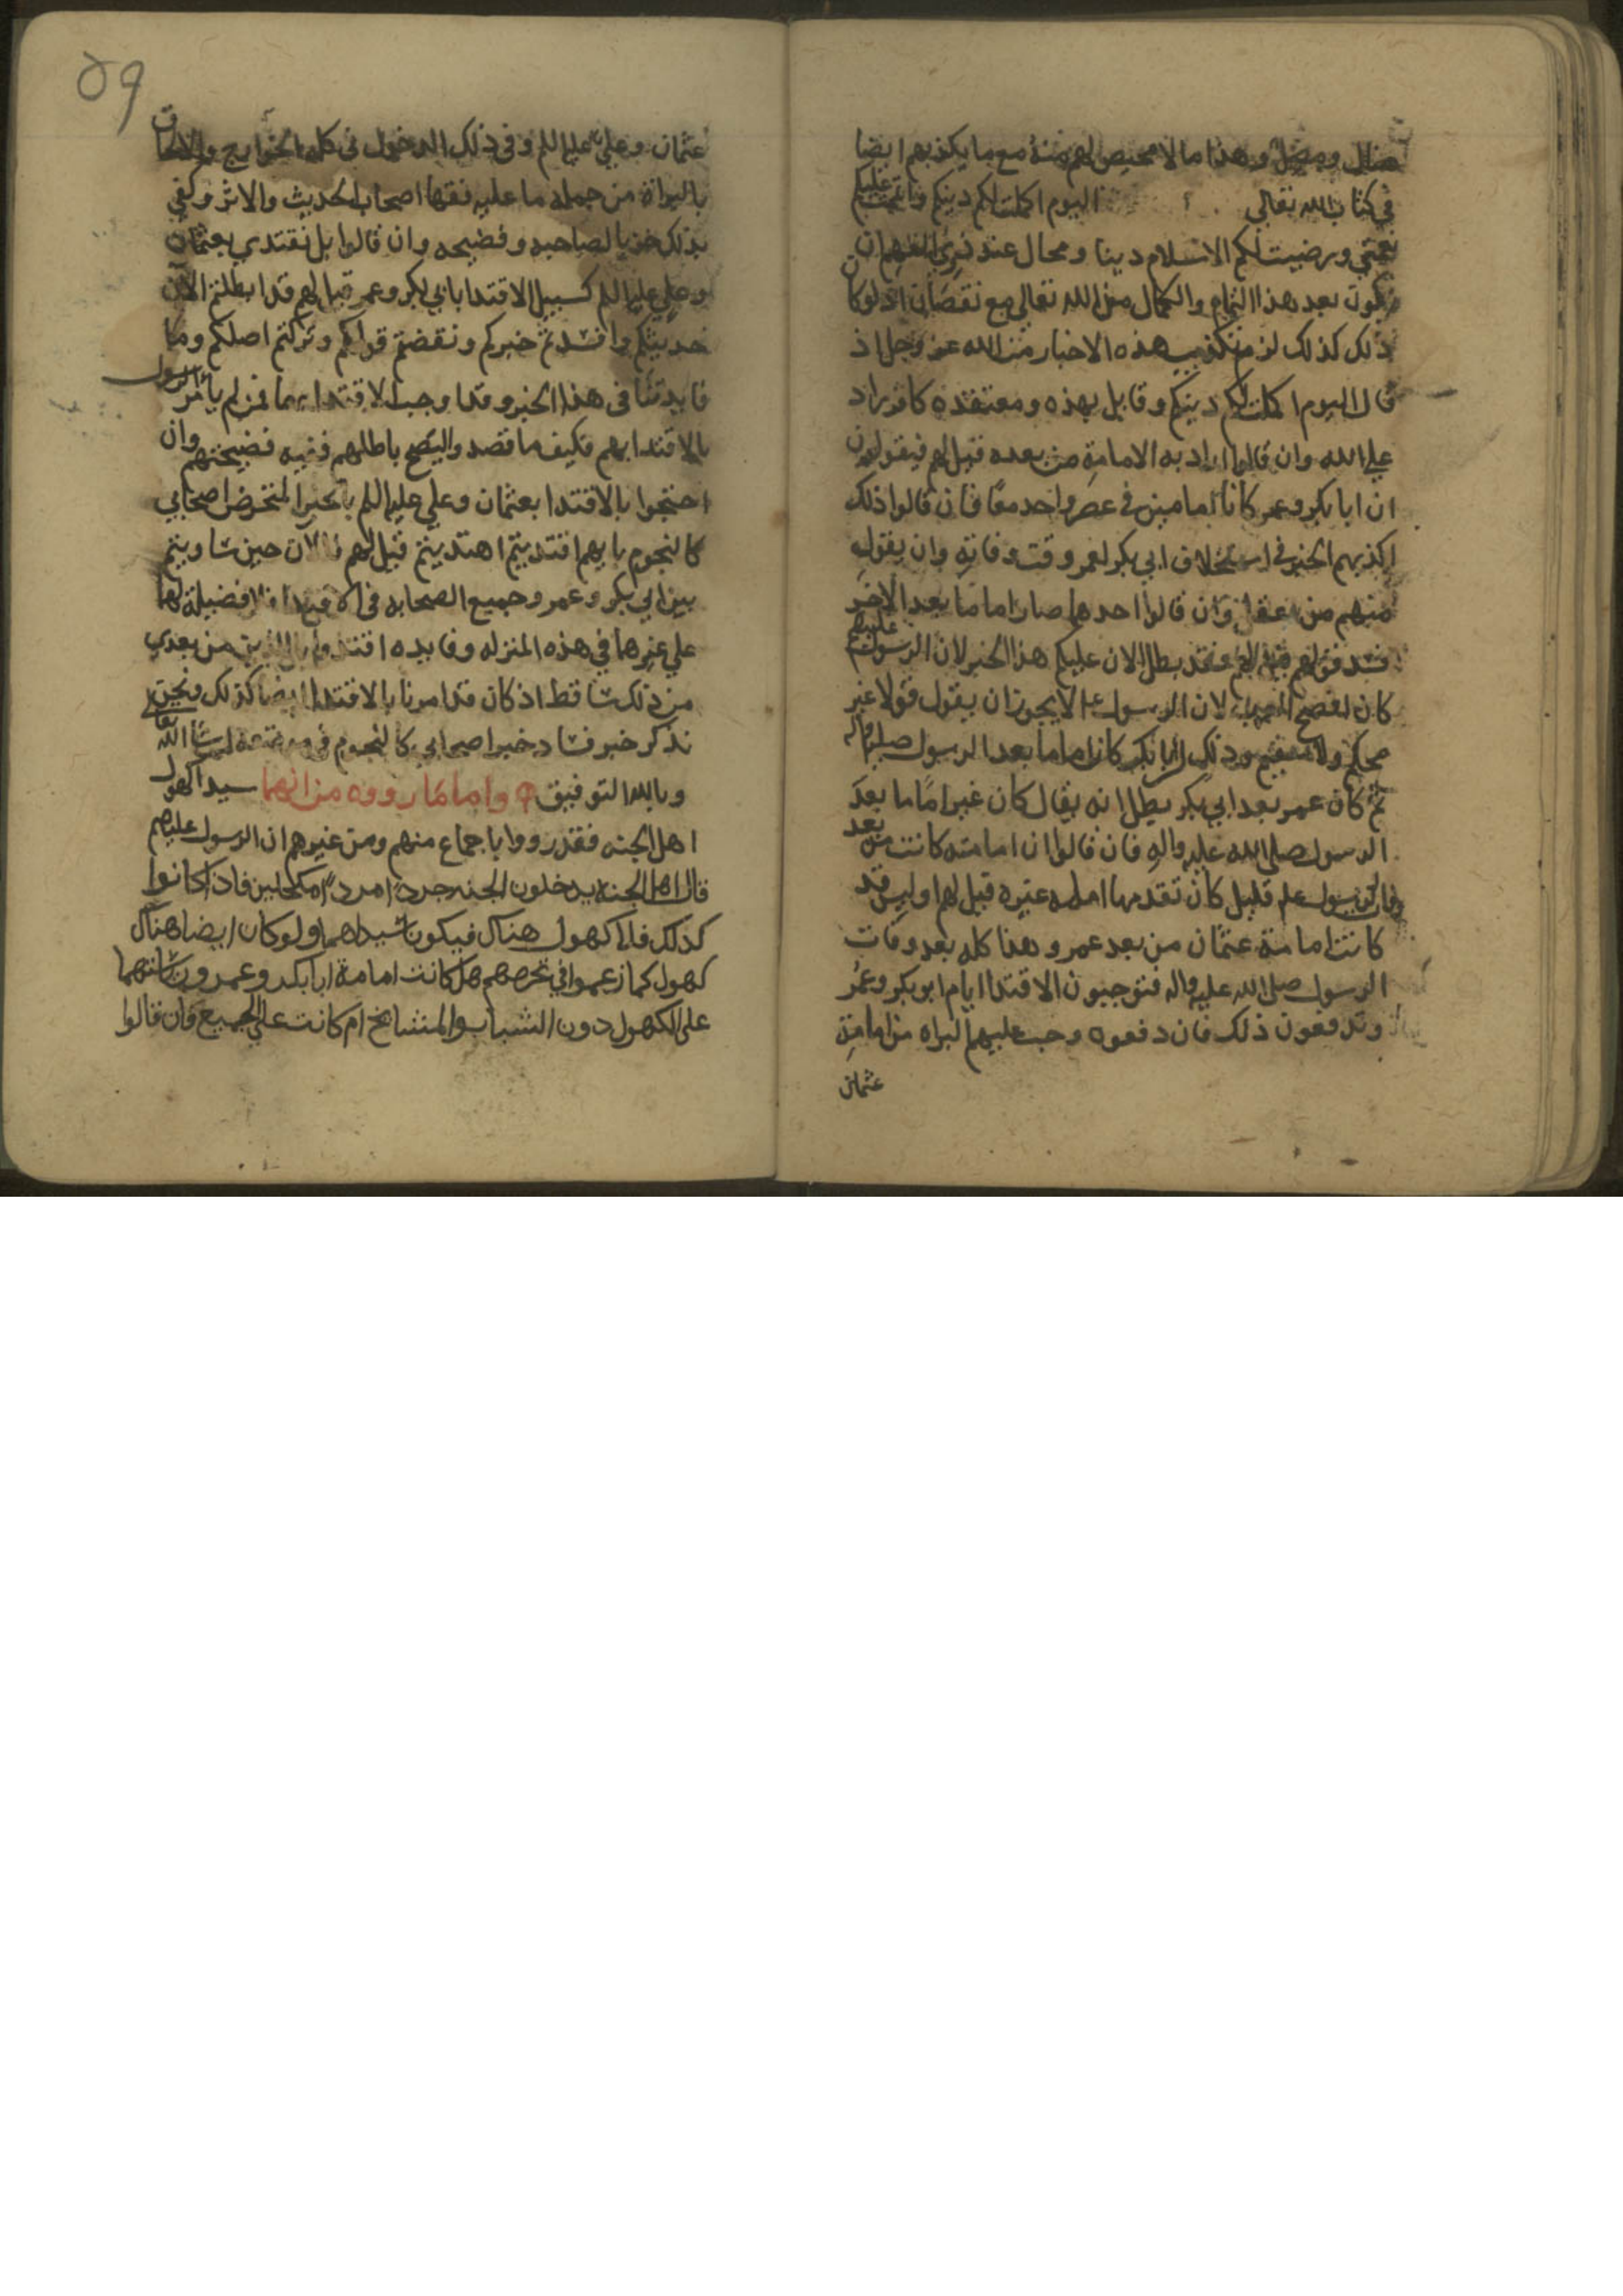 ضال ومضل وهذا ما لا محيص لهم منه مع ما يكذبهم ايضا
في كتاب الله تعالى اليوم اكملت لكم دينكم واتممت عليكم
نعمتي ورضيت لكم الاسلام دينا ومحال عند ذوي الفهم ان
يكون بعد هذا التمام والكمال من الله تعالى مع نقصان اذ لو كان
ذلك كذلك لزم تكذيب هذه الاخبار من الله عز وجل اذ
قال اليوم اكملت لكم دينكم وقايل بهذه ومعتقده كافر راد
علي الله وان قالوا اراد به الامامة من بعده قيل لهم فيقولون
ان ابا بكر وعمر كانا امامين في عصر واحد معا فان قالوا ذلك
اكذبهم الخبر في استخلاف ابي بكر لعمر وقت وفاته وان يقول
منهم من عقل وان قالوا احدهما صار اماما بعد الاخر
فسد قولهم قيل لهم فقد بطل الان عليكم هذا الخبر لان الرسول عليه السلم
كان افصح العرب لان الرسول علم لا يجوز ان يقول قولا غير
محكم ولا مستقيم وذلك ان ابا بكر كان اماما بعد الرسول صلى الله واله
ثم كان عمر بعد ابي بكر بطل انه يقال كان غير اماما بعد
الرسول صلى الله عليه واله فان قالوا ان امامته كانت من بعد
وفات الرسول علم قليل كان تقدمها امامه غيره قيل لهم اوليس قد
كانت امامة عثمان من بعد عمر وهذا كله بعد وفات
الرسول صلى الله عليه واله فتوجبون الاقتدا ايام ابو بكر وعمر
وتدفعون ذلك فان دفعوه وجب عليهم البراه من امامة
عثمان
٥٩
عثمان وعلي عليه السلم وفي ذلك الدخول في كلمه الخوارج والاتفاق
بالبراة من جملة ما عليه فقها اصحاب الحديث والاثر وكفي
بذلك خزيا لصاحبه وفضيحه وان قالوا بل نقتدي بعثمان
وعلي عليه السلم كسبيل الاقتدا بابي بكر وعمر قيل لهم قد ابطلتم الآن
حديثكم وافسدتم خبركم ونقضتم قولكم وتركتم اصلكم وما
فايدتنا في هذا الخبر وقد اوجب الاقتداء بهما فمن لم يأمر الرسول
بالاقتدا بهم فكيف ما قصد واليتضح باطلهم ففيه فضيحتهم وان
احتجوا بالاقتدا بعثمان وعلي عليه السلم بالخبر المتخرض اصحابي
كالنجوم بايهم اقتديتم اهتديتم قيل لهم فالآن حين ساويتم
بين ابي بكر وعمر وجميع الصحابه في الاقتدا فلا فضيلة لهما
علي غيرهما في هذه المنزله وفايده اقتدوا بالذين من بعدي
من ذلك ساقط اذ كان قد امرنا بالاقتدا ايضا كذلك ونحن
نذكر خبر فساد خبر اصحابي كالنجوم في موضعه ان شا الله تعالى
وبالله التوفيق واما ما رووه من انهما سيدا كهول
اهل الجنه فقد رووا باجماع منهم ومن غيرهم ان الرسول عليه السلم
قال اهل الجنه يدخلون الجنه جردا مردا مكحلين فاذا كانوا
كذلك فلا كهول هناك فيكونا سيداهما ولو كان ايضا هناك
كهول كما زعموا في تخرصهم هل كانت امامة ابا بكر وعمر ورياستهما
على الكهول دون الشباب والمشايخ ام كانت على الجميع فان قالوا